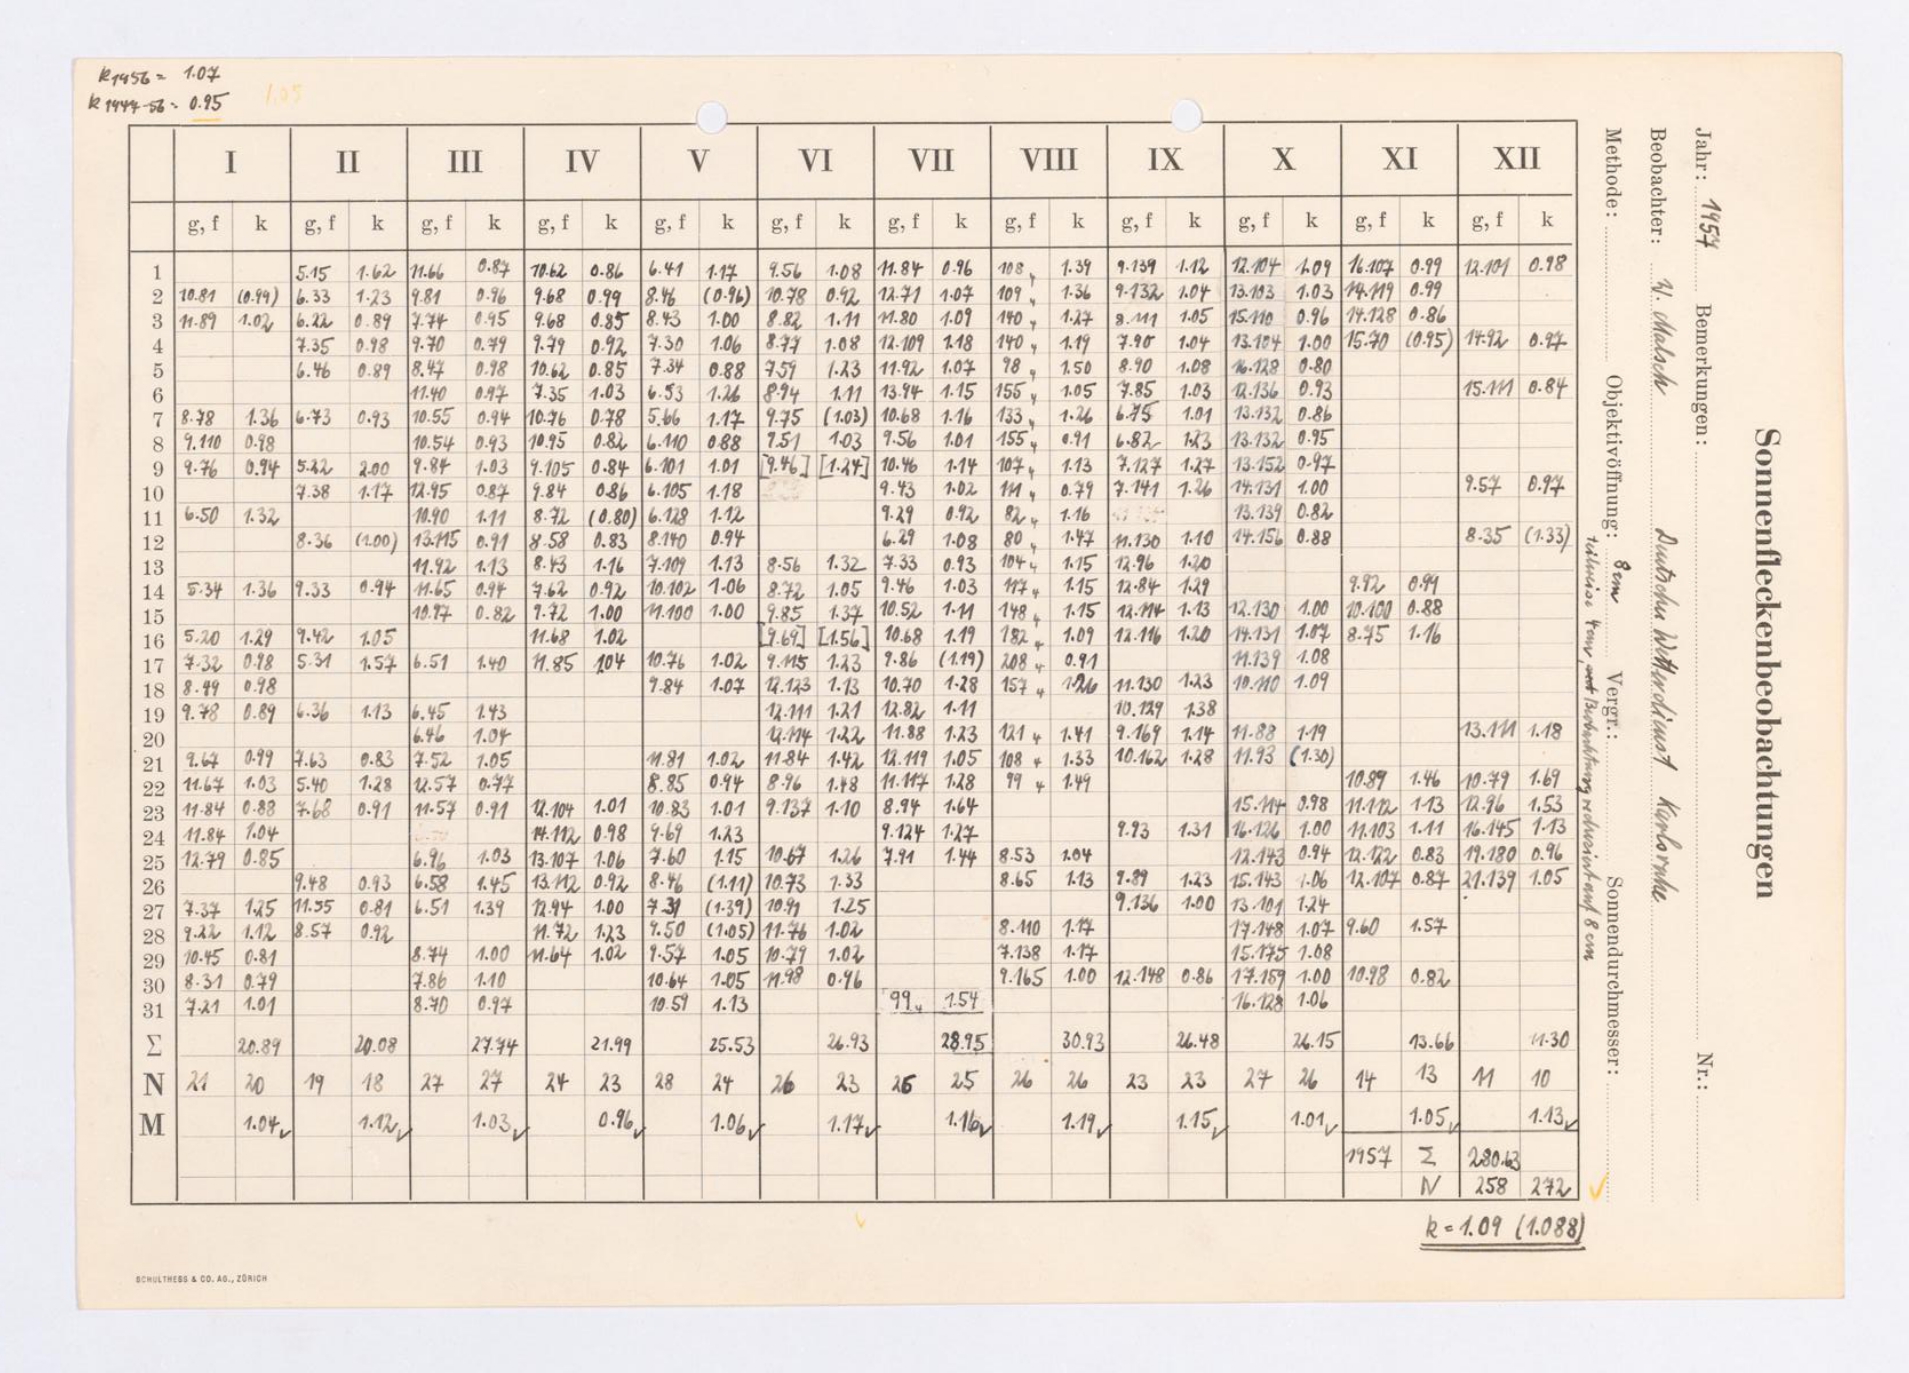 k 1956 = 1.07
k 1947-56 = 0.95 1.05
I II III IV V VI VII VIII IX X XI XII
g, f k g, f k g, f k g, f k g, f k g, f k g, f k g, f k g, f k g, f k g, f k g, f k
1 5.15 1.62 11.66 0.87 10.62 0.86 6.41 1.17 9.56 1.08 11.84 0.96 108 „ 1.39 9.139 1.12 12.104 1.09 16.107 0.99 12.101 0.98
2 10.81 (0.99) 6.33 1.23 9.81 0.96 9.68 0.99 8.46 (0.96) 10.78 0.92 12.71 1.07 109 „ 1.36 9.132 1.04 13.103 1.03 14.119 0.99
3 11.89 1.02 6.22 0.89 7.74 0.95 9.68 0.85 8.43 1.00 8.82 1.11 11.80 1.09 140 „ 1.27 8.111 1.05 15.110 0.96 14.128 0.86
4 7.35 0.98 9.70 0.79 9.79 0.92 7.30 1.06 8.77 1.08 12.109 1.18 140 „ 1.19 7.90 1.04 13.104 1.00 15.70 (0.95) 14.92 0.97
5 6.46 0.89 8.47 0.98 10.62 0.85 7.34 0.88 7.59 1.23 11.92 1.07 98 „ 1.50 8.90 1.08 16.128 0.80
6 11.40 0.97 7.35 1.03 6.53 1.26 8.94 1.11 13.94 1.15 155 „ 1.05 7.85 1.03 12.136 0.93 15.111 0.84
7 8.78 1.36 6.73 0.93 10.55 0.94 10.76 0.78 5.66 1.17 9.75 (1.03) 10.68 1.16 133 „ 1.26 6.75 1.01 13.132 0.86
8 9.110 0.98 10.54 0.93 10.95 0.82 6.110 0.88 7.51 1.03 9.56 1.01 155 „ 0.91 6.82 1.23 13.132 0.95
9 9.76 0.94 5.22 2.00 9.84 1.03 9.105 0.84 6.101 1.01 [9.46] [1.24] 10.46 1.14 107 „ 1.13 7.127 1.27 13.152 0.97
10 7.38 1.17 12.95 0.87 9.84 0.86 6.105 1.18 9.43 1.02 111 „ 0.79 7.141 1.26 14.131 1.00 9.57 0.97
11 6.50 1.32 10.90 1.11 8.72 (0.80) 6.128 1.12 9.29 0.92 82 „ 1.16 13.139 0.82
12 8.36 (1.00) 13.115 0.91 8.58 0.83 8.140 0.94 6.29 1.08 80 „ 1.47 11.130 1.10 14.156 0.88 8.35 (1.33)
13 11.92 1.13 8.43 1.16 7.109 1.13 8.56 1.32 7.33 0.93 104 „ 1.15 12.96 1.20
14 5.34 1.36 9.33 0.94 11.65 0.94 7.62 0.92 10.102 1.06 8.72 1.05 9.46 1.03 117 „ 1.15 12.84 1.29 9.92 0.99
15 10.97 0.82 9.72 1.00 11.100 1.00 9.85 1.37 10.52 1.11 148 „ 1.15 12.114 1.13 12.130 1.00 10.100 0.88
16 5.20 1.29 9.42 1.05 11.68 1.02 [9.69] [1.56] 10.68 1.19 182 „ 1.09 12.116 1.20 14.131 1.07 8.75 1.16
17 7.32 0.98 5.31 1.57 6.51 1.40 11.85 1.04 10.76 1.02 9.115 1.23 9.86 (1.19) 208 „ 0.91 11.139 1.08
18 8.99 0.98 9.84 1.07 12.123 1.13 10.70 1.28 157 „ 1.26 11.130 1.23 10.110 1.09
19 9.78 0.89 6.36 1.13 6.45 1.43 12.111 1.21 12.82 1.11 10.129 1.38
20 6.46 1.04 12.114 1.22 11.88 1.23 121 „ 1.41 9.169 1.14 11.88 1.19 13.111 1.18
21 9.67 0.99 7.63 0.83 7.52 1.05 11.81 1.02 11.84 1.42 12.119 1.05 108 „ 1.33 10.162 1.28 11.93 (1.30)
22 11.67 1.03 5.40 1.28 12.57 0.77 8.85 0.94 8.96 1.48 11.117 1.28 99 „ 1.49 10.89 1.46 10.79 1.69
23 11.84 0.88 7.68 0.91 11.57 0.91 12.104 1.01 10.83 1.01 9.137 1.10 8.94 1.64 15.114 0.98 11.112 1.13 12.96 1.53
24 11.84 1.04 14.112 0.98 9.69 1.23 9.124 1.27 9.93 1.31 16.126 1.00 11.103 1.11 16.145 1.13
25 12.79 0.85 6.96 1.03 13.107 1.06 7.60 1.15 10.67 1.26 7.91 1.44 8.53 1.04 12.143 0.94 12.122 0.83 19.180 0.96
26 9.48 0.93 6.58 1.45 13.112 0.92 8.46 (1.11) 10.73 1.33 8.65 1.13 9.89 1.23 15.143 1.06 12.107 0.87 21.139 1.05
27 7.37 1.25 11.55 0.81 6.51 1.39 12.94 1.00 7.31 (1.39) 10.91 1.25 9.136 1.00 13.101 1.24
28 9.22 1.12 8.57 0.92 11.72 1.23 9.50 (1.05) 11.76 1.02 8.110 1.17 17.148 1.07 9.60 1.57
29 10.45 0.81 8.74 1.00 11.64 1.02 9.57 1.05 10.79 1.02 7.138 1.17 15.175 1.08
30 8.31 0.79 7.86 1.10 10.64 1.05 11.98 0.96 9.165 1.00 12.148 0.86 17.159 1.00 10.98 0.82
31 7.21 1.01 8.70 0.97 10.59 1.13 99 „ 1.54 16.128 1.06
Σ 20.89 20.08 27.74 21.99 25.53 26.93 28.95 30.93 26.48 26.15 13.66 11.30
N 21 20 19 18 27 27 24 23 28 24 26 23 26 25 26 26 23 23 27 26 14 13 11 10
M 1.04 1.12 1.03 0.96 1.06 1.17 1.16 1.19 1.15 1.01 1.05 1.13
1957 Σ 280.63
N 258 272
k = 1.09 (1.088)
SCHULTHESS & CO. AG., ZÜRICH
Sonnenfleckenbeobachtungen
Jahr: 1957 Bemerkungen: Nr.:
Beobachter: W. Malsch Deutscher Wetterdienst Karlsruhe
Methode: Objektivöffnung: 8 cm Vergr.: Sonnendurchmesser:
teilweise 4 cm, Beobachtung reduziert auf 8 cm